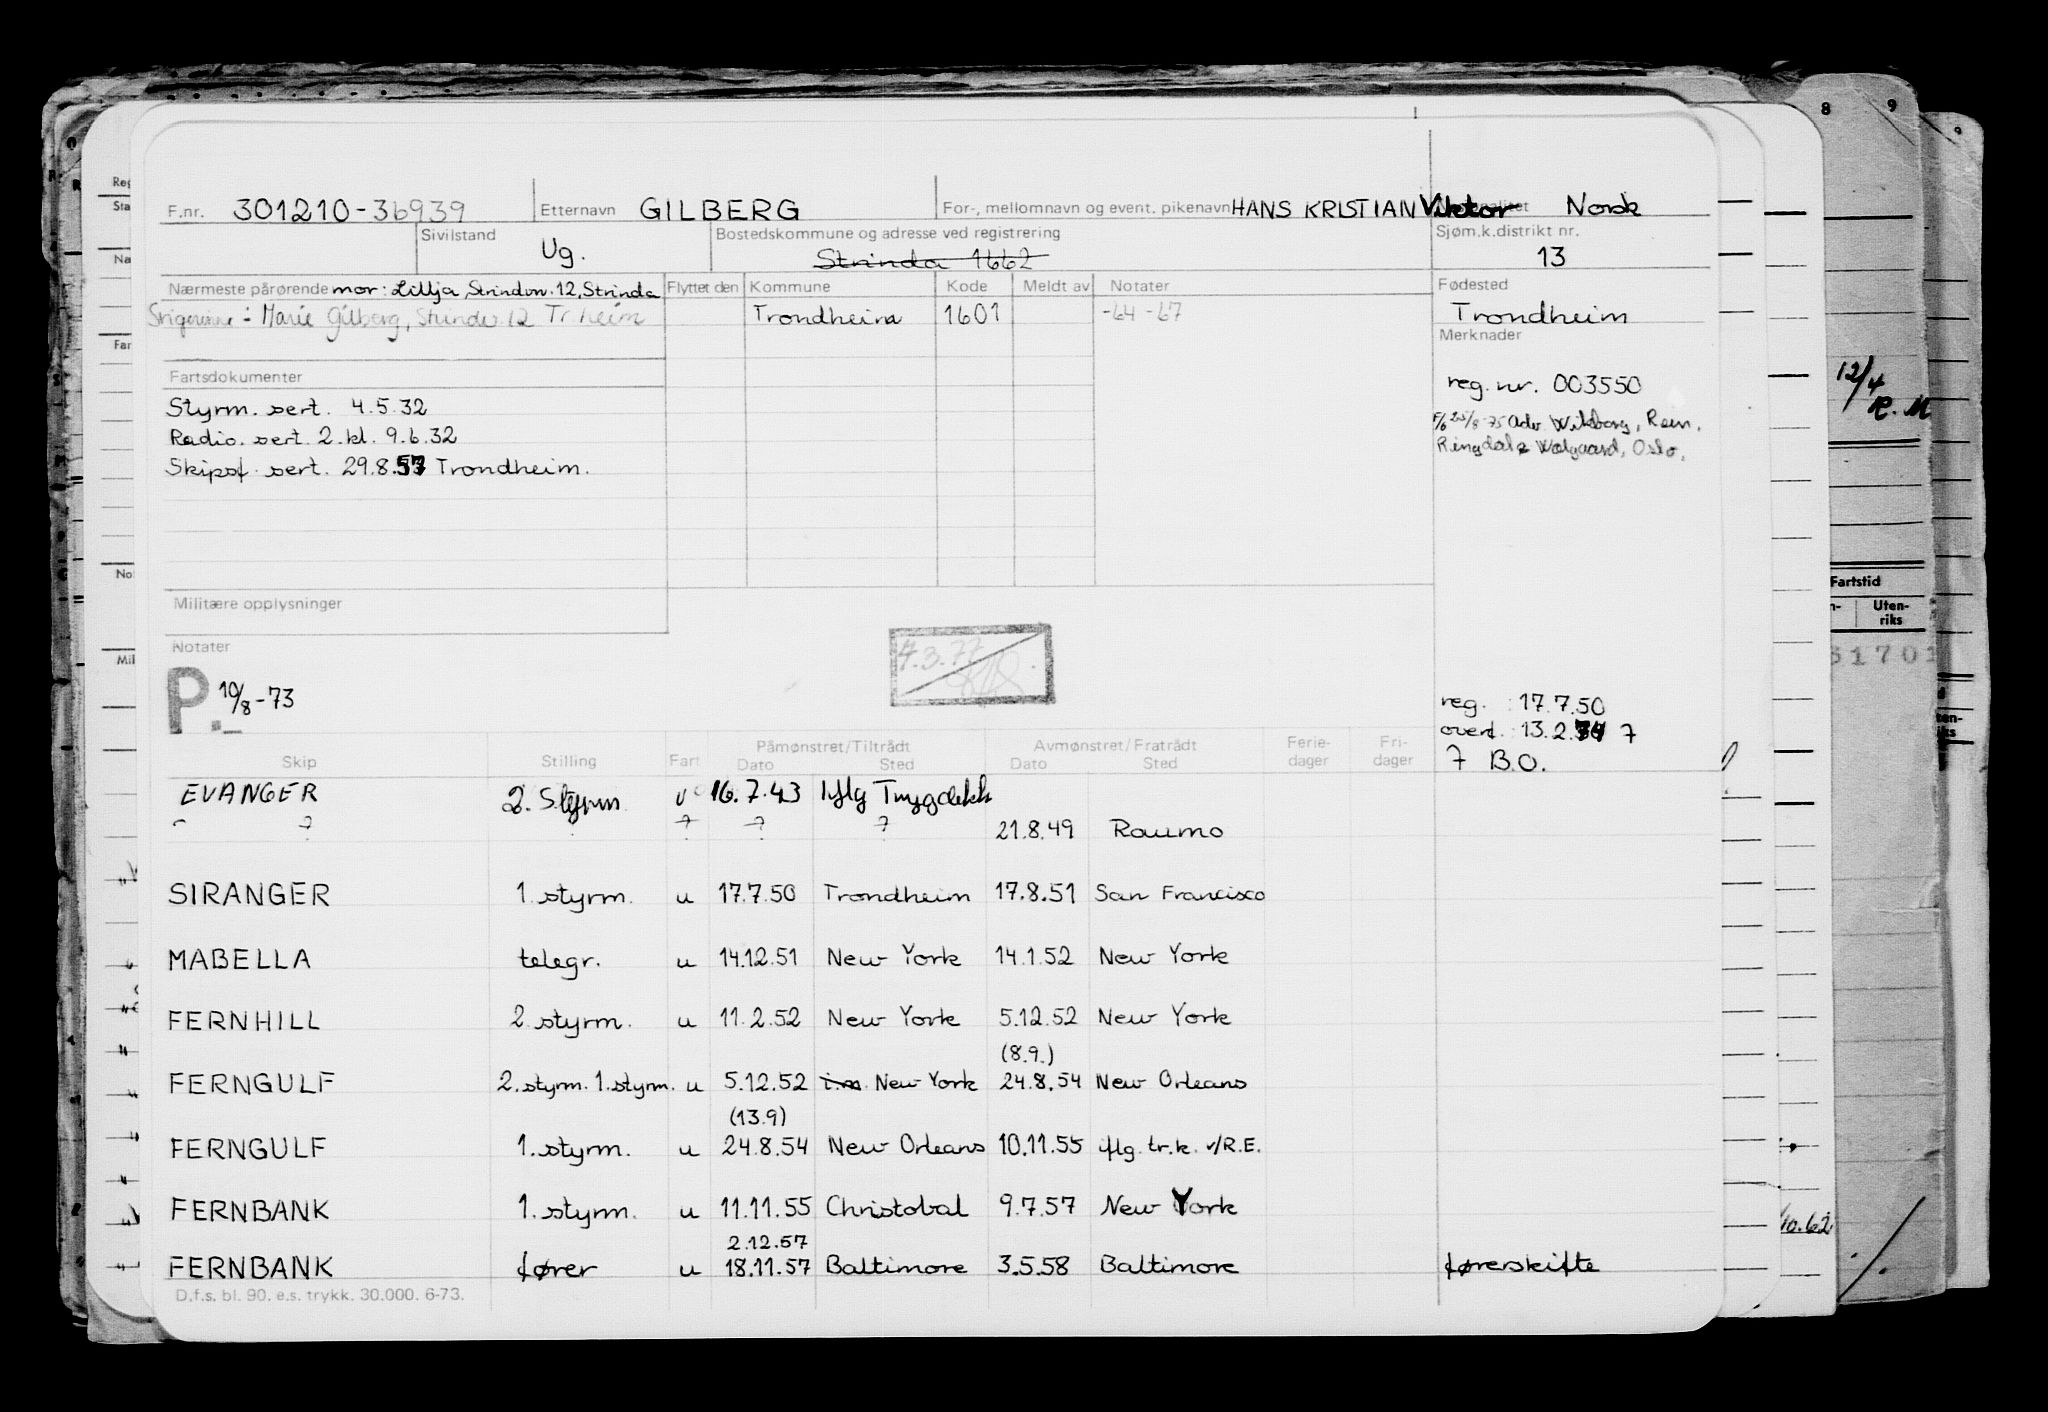 F.nr. 301210-36939 Etternavn GILBERG For-, mellomnavn og event. pikenavn HANS KRISTIAN Viktor Norsk
Sivilstand Ug. Bostedskommune og adresse ved registrering Strinda 1662 Sjøm.k.distrikt nr. 13
Nærmeste pårørende mor: Lillja, Strindvn. 12, Strinda Flyttet den Kommune Kode Meldt av Notater Fødested
Marie Gilberg, Strindv. 12 Tr.heim Trondheim 1601 -64 -67 Trondheim
Merknader
Fartsdokumenter reg. nr. 003550
Styrm. sert. 4.5.32 Adv. Wikborg, Rein,
Radio. sert. 2. kl. 9.6.32 Ringdal & Wålgaard, Oslo.
Skipsf. sert. 29.8.57 Trondheim.
Militære opplysninger
Notater
P. 10/8-73 7.3.77
reg. : 17.7.50
overf. : 13.2.74 7
7 B.O.
Skip Stilling Fart Påmønstret/Tiltrådt Dato Sted Avmønstret/Fratrådt Dato Sted Ferie-dager Fri-dager
EVANGER 2. Styrm u 16.7.43 iflg Trygdekk
" ? ? ? ? 21.8.49 Raumo
SIRANGER 1. styrm. u 17.7.50 Trondheim 17.8.51 San Francisco
MABELLA telegr. u 14.12.51 New York 14.1.52 New York
FERNHILL 2. styrm. u 11.2.52 New York 5.12.52 New York
(8.9.)
FERNGULF 2. styrm. 1. styrm. u 5.12.52 New York 24.8.54 New Orleans
(13.9)
FERNGULF 1. styrm. u 24.8.54 New Orleans 10.11.55 iflg. tr.k. v/R.E.
FERNBANK 1. styrm. u 11.11.55 Christobal 9.7.57 New York
2.12.57
FERNBANK fører u 18.11.57 Baltimore 3.5.58 Baltimore førerskifte
D.f.s. bl. 90. e.s. trykk. 30.000. 6-73.
8 9
12/4
R. M
Fartstid
Uten-
riks
61701
10.62